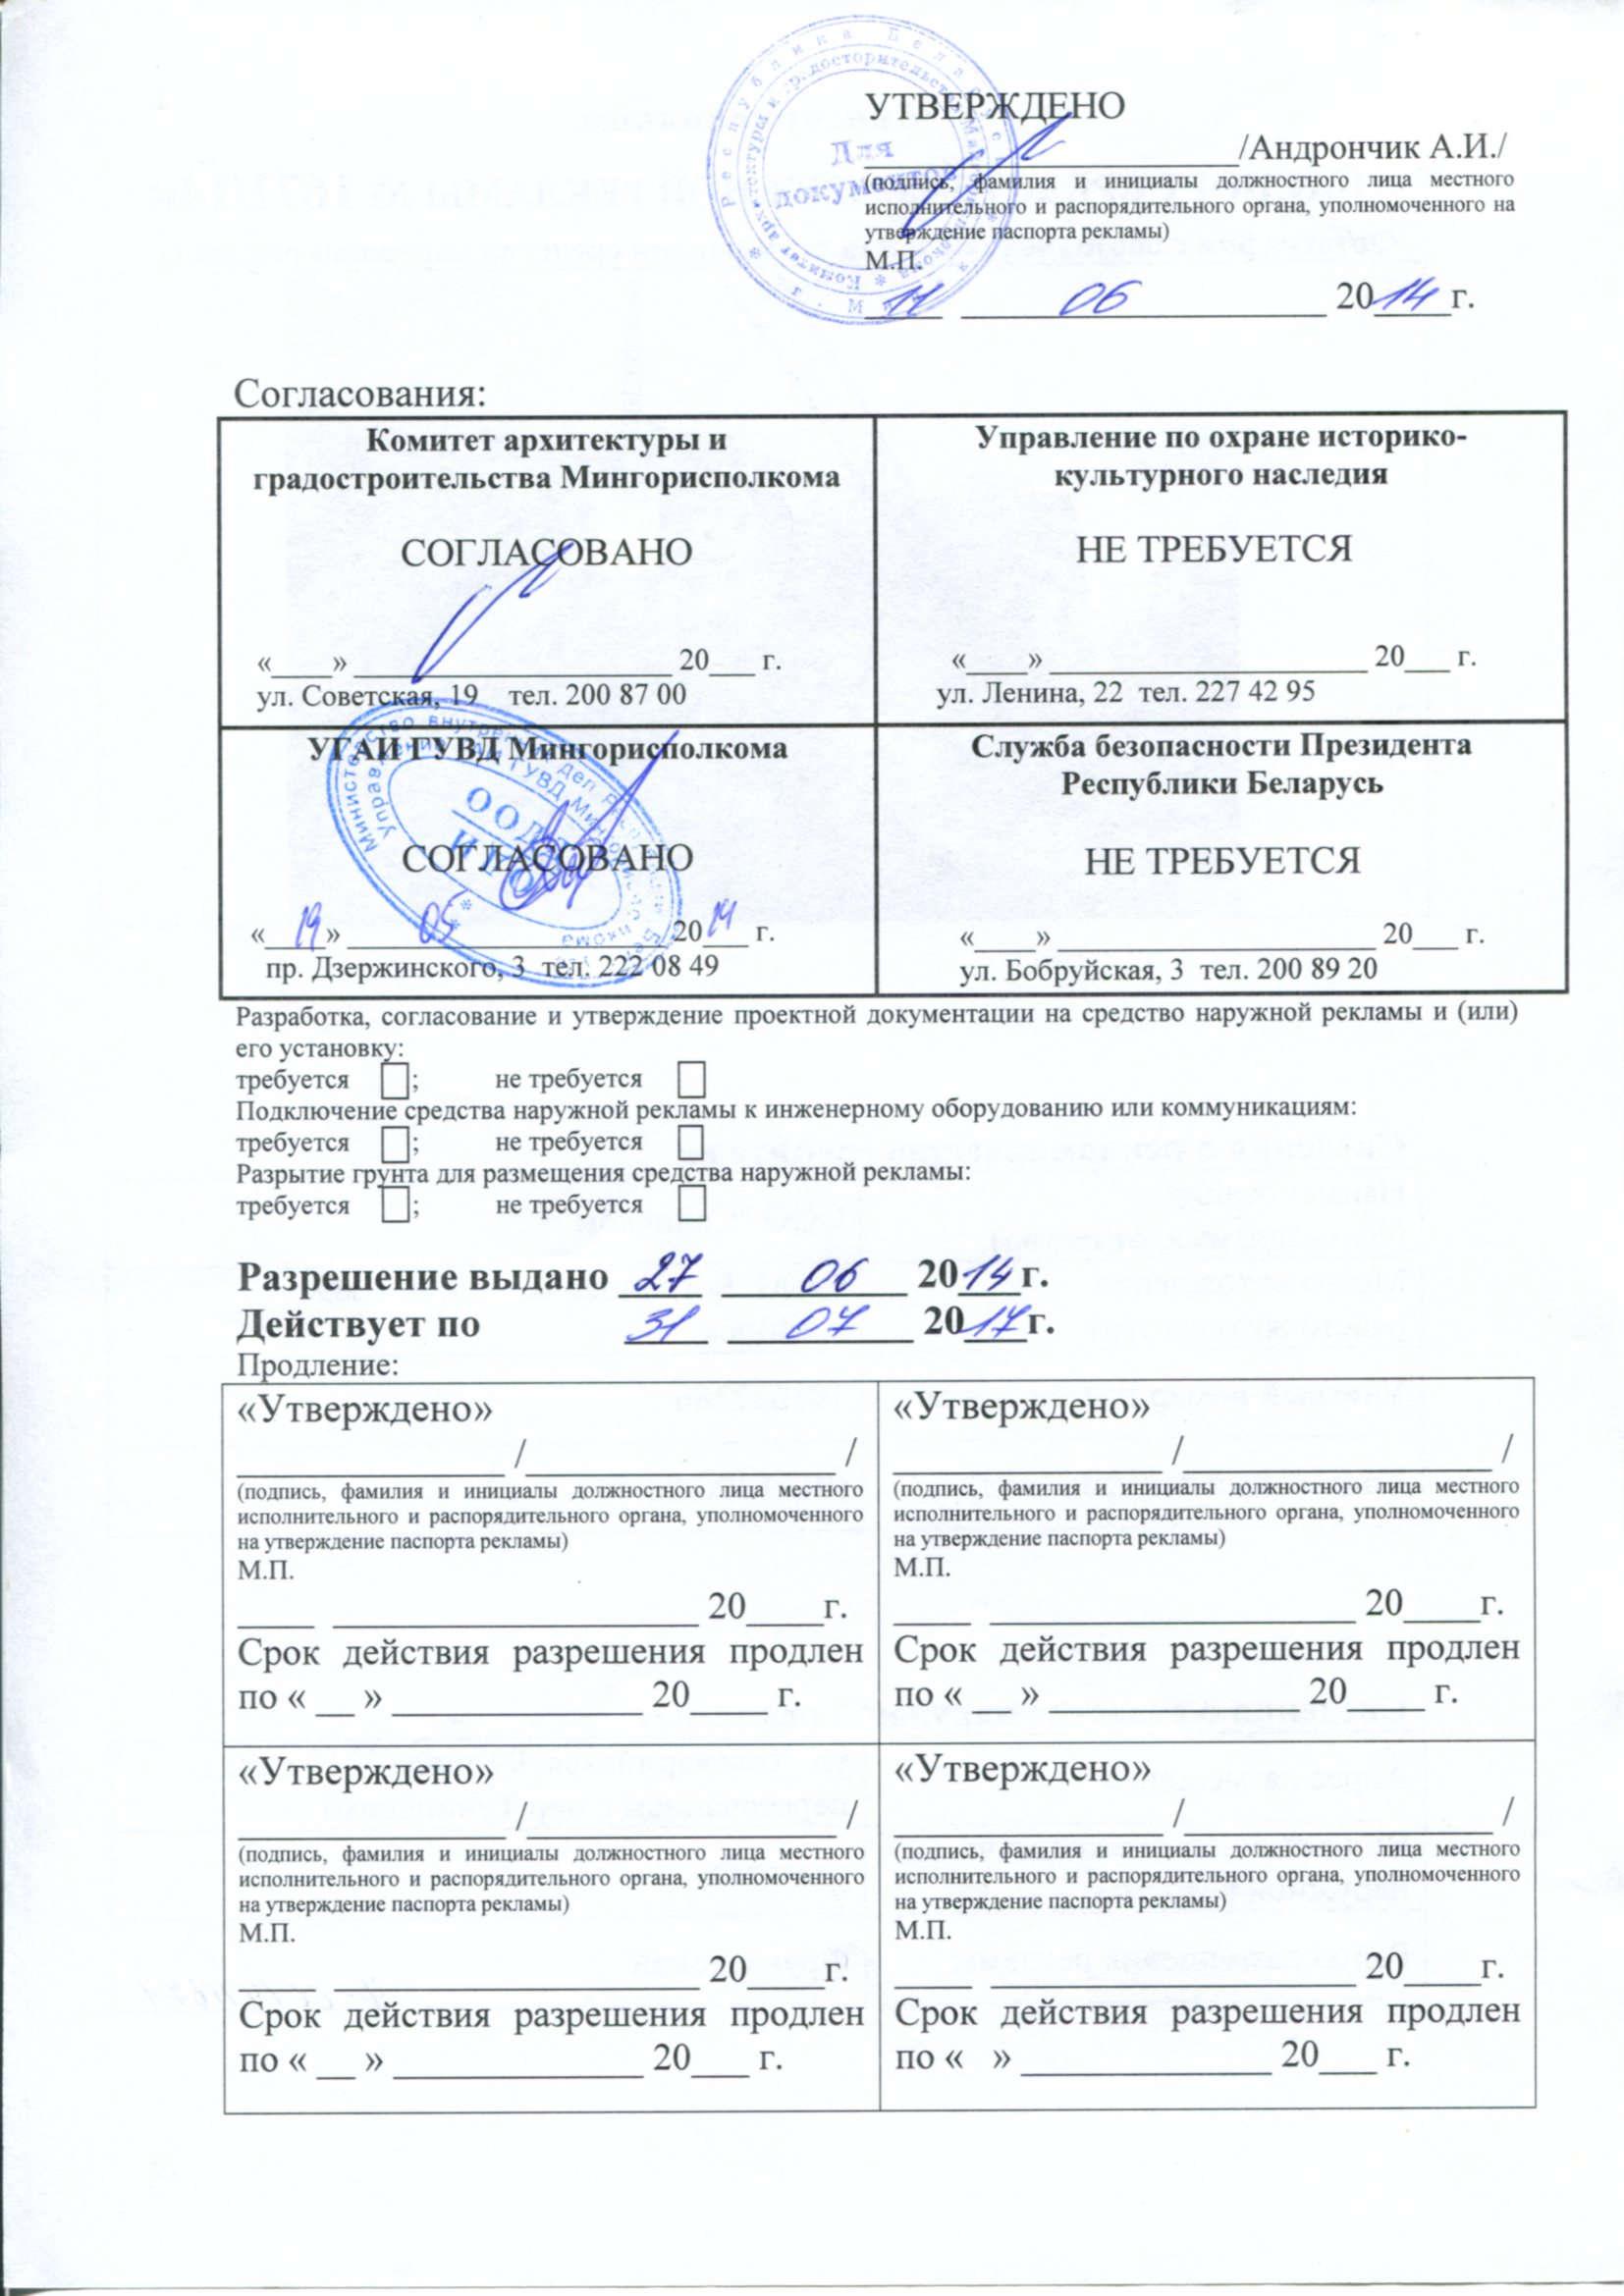 УТВЕРЖДЕНО
____________________/Андрончик А.И./
(подпись, фамилия и инициалы должностного лица местного
исполнительного и распорядительного органа, уполномоченного на
утверждение паспорта рекламы)
М.П.
11 06 2014г.
Республика Беларусь
Для
документов
Согласования:
Комитет архитектуры и
градостроительства Мингорисполкома
СОГЛАСОВАНО
«____» ____________________ 20___ г.
ул. Советская, 19 тел. 200 87 00
Управление по охране историко-
культурного наследия
НЕ ТРЕБУЕТСЯ
«____» ____________________ 20___ г.
ул. Ленина, 22 тел. 227 42 95
УГАИ ГУВД Мингорисполкома
СОГЛАСОВАНО
«19» 05 2014 г.
пр. Дзержинского, 3 тел. 222 08 49
Служба безопасности Президента
Республики Беларусь
НЕ ТРЕБУЕТСЯ
«____» ____________________ 20___ г.
ул. Бобруйская, 3 тел. 200 89 20
Разработка, согласование и утверждение проектной документации на средство наружной рекламы и (или)
его установку:
требуется ; не требуется
Подключение средства наружной рекламы к инженерному оборудованию или коммуникациям:
требуется ; не требуется
Разрытие грунта для размещения средства наружной рекламы:
требуется ; не требуется
Разрешение выдано 27 06 2014г.
Действует по 31 07 2017г.
Продление:
«Утверждено»
______________ /________________ /
(подпись, фамилия и инициалы должностного лица местного
исполнительного и распорядительного органа, уполномоченного
на утверждение паспорта рекламы)
М.П.
____ ___________________ 20____г.
Срок действия разрешения продлен
по « __ » _____________ 20____ г.
«Утверждено»
______________ /________________ /
(подпись, фамилия и инициалы должностного лица местного
исполнительного и распорядительного органа, уполномоченного
на утверждение паспорта рекламы)
М.П.
____ ___________________ 20____г.
Срок действия разрешения продлен
по « __ » _____________ 20____ г.
«Утверждено»
______________ /________________ /
(подпись, фамилия и инициалы должностного лица местного
исполнительного и распорядительного органа, уполномоченного
на утверждение паспорта рекламы)
М.П.
____ ___________________ 20____г.
Срок действия разрешения продлен
по « __ » _____________ 20___ г.
«Утверждено»
______________ /________________ /
(подпись, фамилия и инициалы должностного лица местного
исполнительного и распорядительного органа, уполномоченного
на утверждение паспорта рекламы)
М.П.
____ ___________________ 20____г.
Срок действия разрешения продлен
по « » _____________ 20___ г.